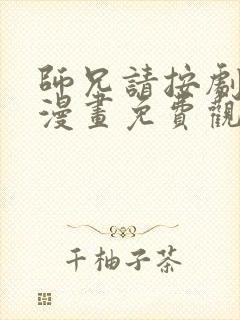 師兄請按劇
漫畫免費觀
千柚子茶